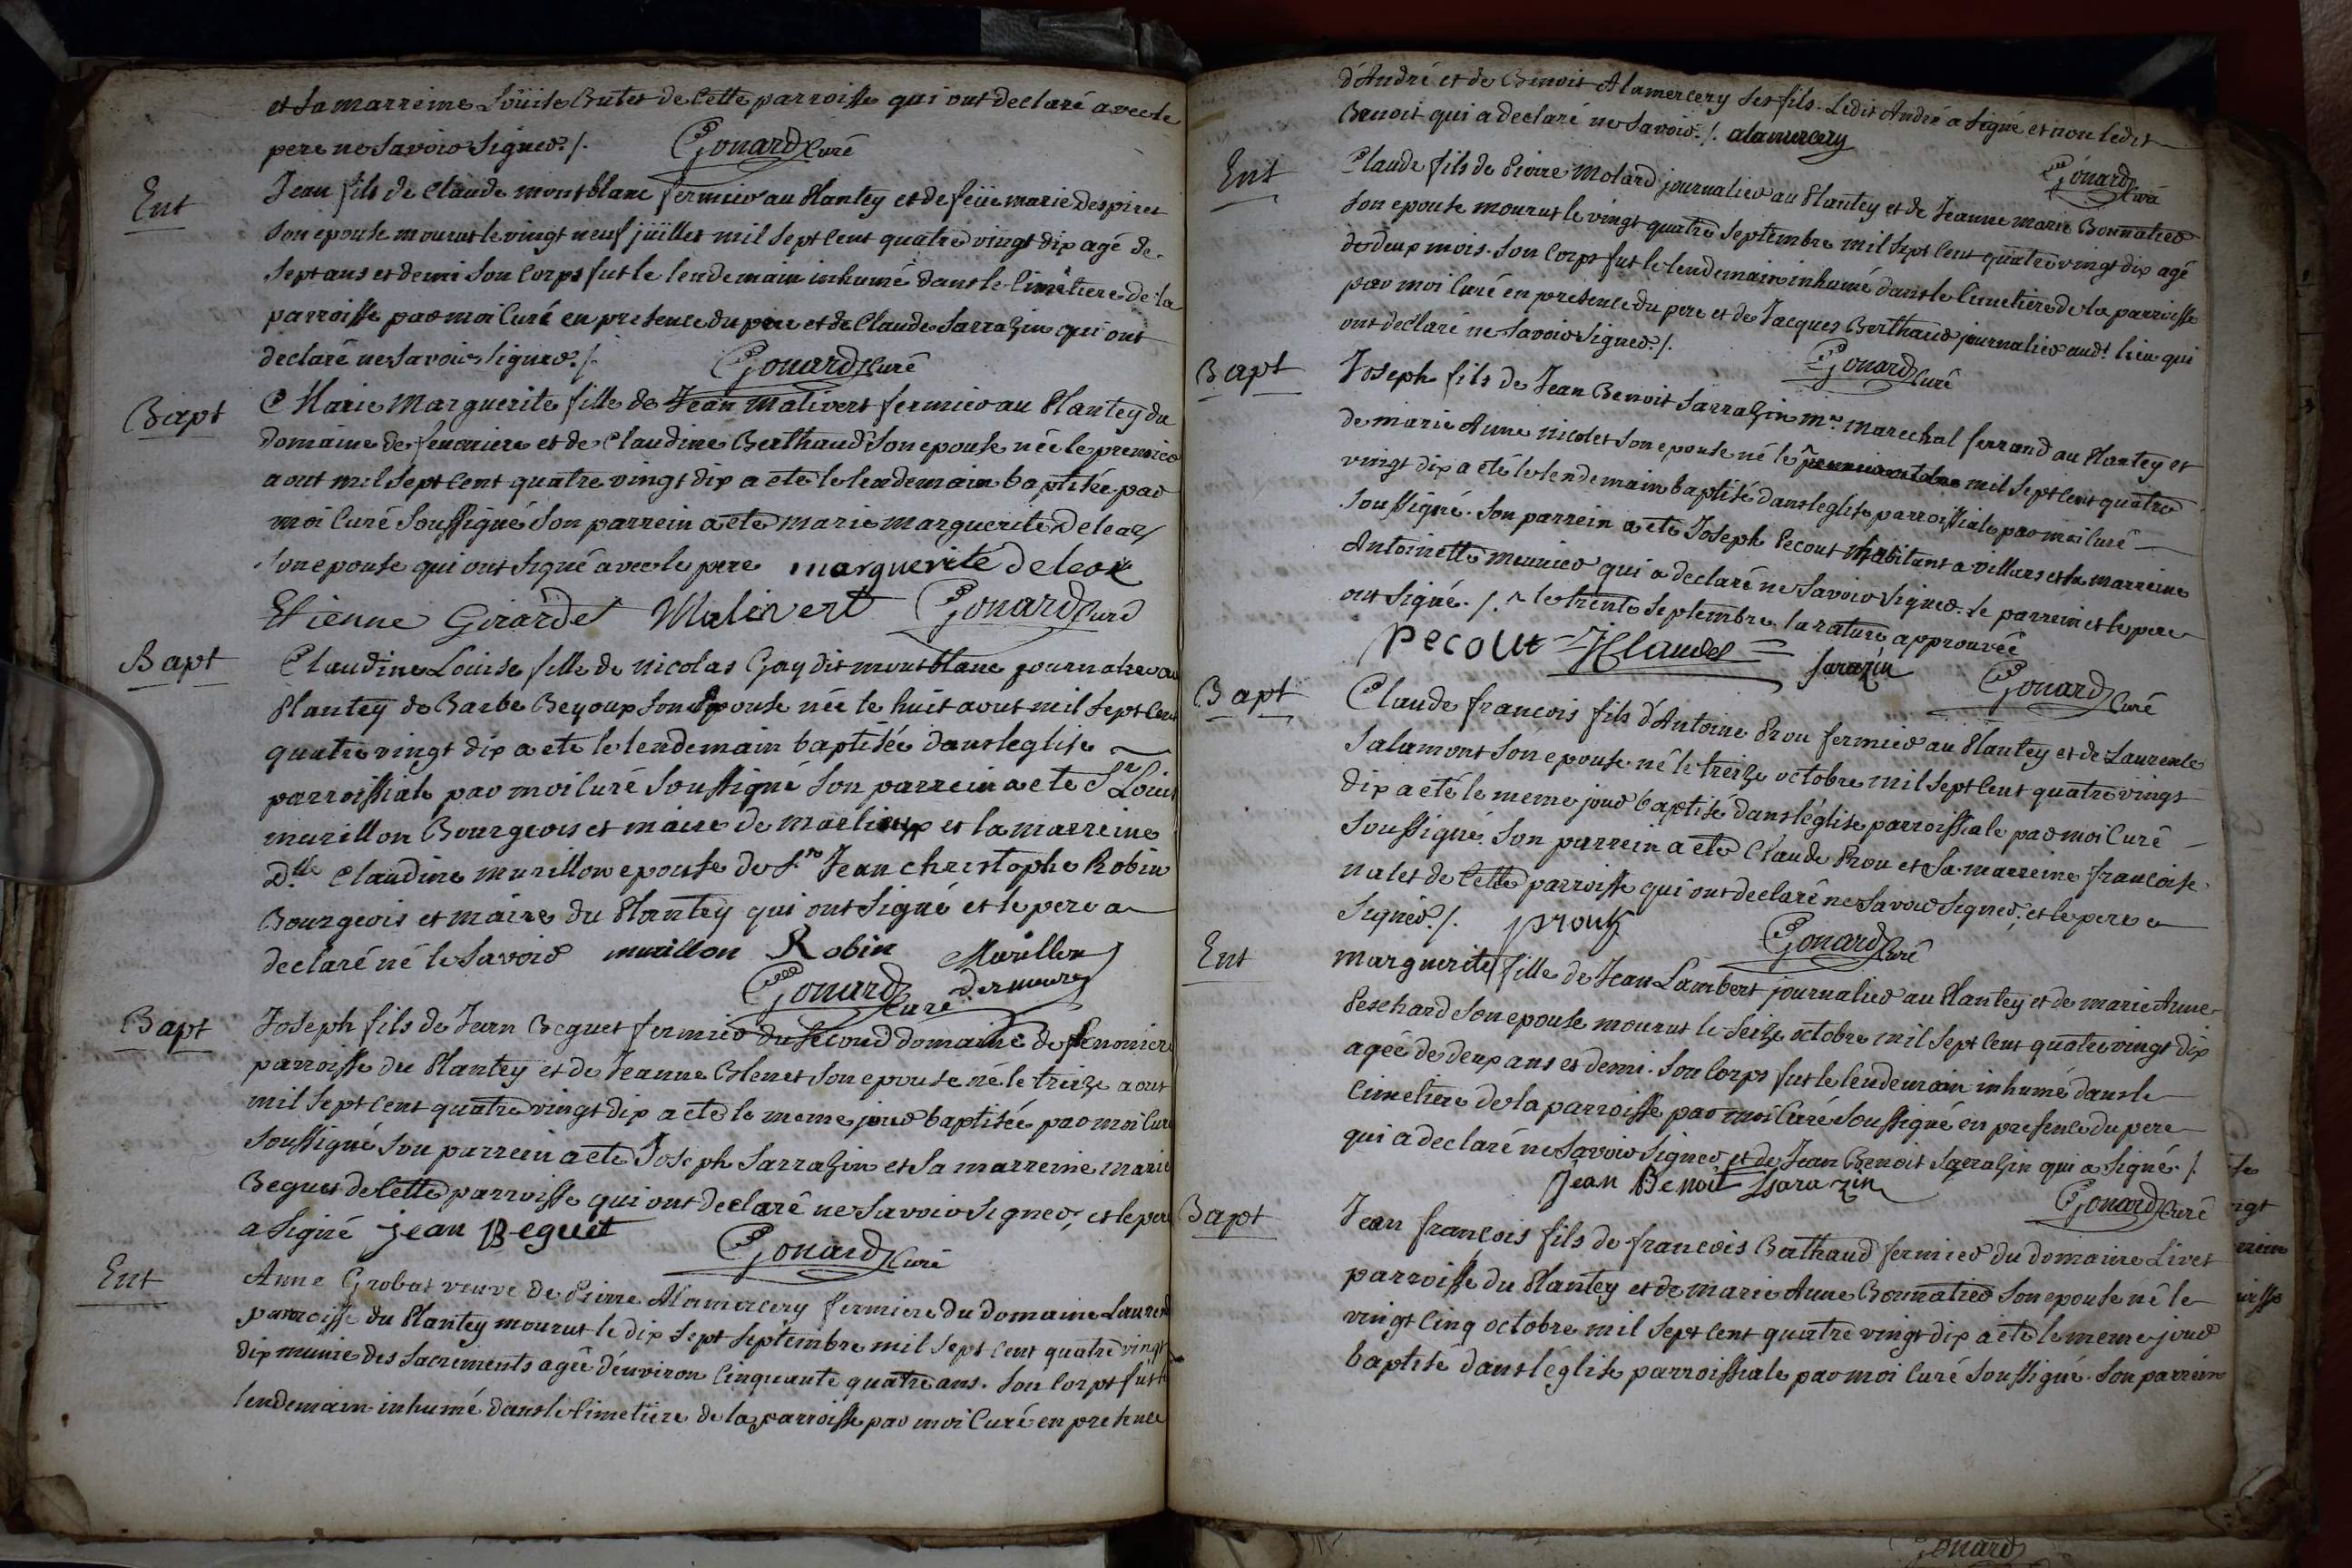 et sa marreine Loüise Butet de cette parroisse qui ont declaré avec le
pere ne savoir signer ./. Gonard Curé
Ent
Jean fils de Claude montblanc fermier au Plantey et de feüe marie Despires
son epouse mourut le vingt neuf jüillet mil sept cent quatre vingt dix agé de
sept ans et demi son corps fut le lendemain inhumé dans le cimetiere de la
parroisse par moi Curé en presence du pere et de Claude Sarrazin qui ont
declaré ne savoir signer ./. Gonard Curé
Bapt
Marie Marguerite fille de Jean Malivert fermier au Plantey du
domaine de fenoniere et de Claudine Berthaud son epouse née le premier
aout mil sept cent quatre vingt dix a eté le lendemain baptisée par
moi Curé soussigné son parrein a eté marie marguerite Deleaz
son epouse qui ont signé avec le pere marguerite deleaz
Etienne Girardet Malivert Gonard Curé
Bapt
Claudine Louise fille de nicolas Gay dit montblanc journalier au
Plantey de Barbe Beyoup son Epouse née le huit aout mil sept cent
quatre vingt dix a eté le lendemain baptisée dans leglise
parroissiale par moi Curé soussigné son parrein a eté Sr Louis
murillon Bourgeois et maire de marlieux et la marreine
Dlle Claudine murillon epouse de Sr Jean christophe Robin
Bourgeois et maire du Plantey qui ont signé et le pere a
declaré né le savoir murillon Robin Murillon
Gonard Curé
Bapt
Joseph fils de Jean Beguet fermier du second domaine de fenoniere
parroisse du Plantey et de Jeanne Blenet son epouse né le treize aout
mil sept cent quatre vingt dix a eté le meme jour baptisée par moi Curé
soussigné son parrein a eté Joseph Sarrazin et sa marreine marie
Beguet de cette parroisse qui ont declaré ne savoir signer, et le pere
a signé jean Beguet Gonard Curé
Ent
Anne Grobat veuve de Pierre Alamercery fermiere du domaine Laurent
parroisse du Plantey mourut le dix sept septembre mil sept cent quatre vingt
dix munie des sacrements agée d'environ cinquante quatre ans. son corps fut le
lendemain inhumé dans le cimetiere de la parroisse par moi Curé en presence
d'André et de Benoit Alamercery ses fils. Ledit André a signé et non ledit
Benoit qui a declaré ne savoir ./. alamercery
Gonard Curé
Ent
Claude fils de Pierre Molard journalier au Plantey et de Jeanne marie Bonnatier
son epouse mourut le vingt quatre septembre mil sept cent quatre vingt dix agé
de deux mois. son corps fut le lendemain inhumé dans le cimetiere de la parroisse
par moi Curé en presence du pere et de Jacques Berthaud journalier aud.t lieu qui
ont declaré ne savoir signer ./. Gonard Curé
Bapt
Joseph fils de Jean Benoit Sarrazin mre marechal ferrand au Plantey et
de marie Anne nicolet son epouse né le mil sept cent quatre
vingt dix a eté le lendemain baptisé dans leglise parroissiale par moi Curé
soussigné. son parrein a eté Joseph Pecout habitant a villars et sa marreine
Antoinette meunier qui a declaré ne savoir signer. le parrein et le pere
ont signé ./. ^ le trente septembre. la rature approuvée
Pecout Sarazin
Gonard Curé
Bapt
Claude francois fils d'Antoine Prou fermier au Plantey et de Laurence
Salamont son epouse né le treize octobre mil sept cent quatre vingt
dix a eté le meme jour baptisé dans l'église parroissiale par moi Curé
soussigné. son parrein a eté Claude Prou et sa marreine francoise
nalet de cette parroisse qui ont declaré ne savoir signer, et le pere a
signé ./. prouz Gonard Curé
Ent
marguerite fille de Jean Lambert journalier au Plantey et de marie Anne
Peschard son epouse mourut le seize octobre mil sept cent quatre vingt dix
agée de deux ans et demi. son corps fut le lendemain inhumé dans le
cimetiere de la parroisse par moi Curé soussigné en presence du pere
qui a declaré ne savoir signer et de Jean Benoit Sarrazin qui a signé ./.
Jean Benoit Sarazin
Gonard Curé
Bapt
Jean francois fils de francois Berthaud fermier du domaine Livet
parroisse du Plantey et de marie Anne Bonnatier son epouse né le
vingt cinq octobre mil sept cent quatre vingt dix a eté le meme jour
baptisé dans l'église parroissiale par moi Curé soussigné. son parrein
Gonard